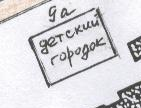 9а
детский
городок